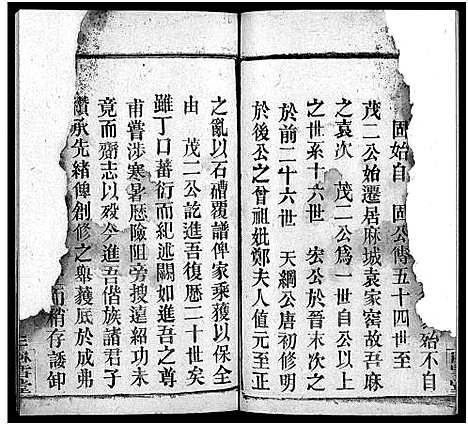 始不自
固始自　固公傳五十四世至
茂二公始遷居麻城袁家窑故吾麻
之袁次　茂二公爲一世自公以上
之世系十六世　宏公於晉末次公
於前二十六世　天綱公唐初修明
於後公之曾祖妣鄭夫人值元至正
之亂以石磹覆譜俾家乘獲以保全
由　茂二公訖進吾復歷二十世矣
雖丁口蕃衍而紀述闕如進吾之尊
甫嘗涉寒暑歷險阻旁搜遠紹功未
竟而齎志以殁今進吾偕族諸君子
纘承先緒俾創修之舉獲底於成弗
而稍存諉卸